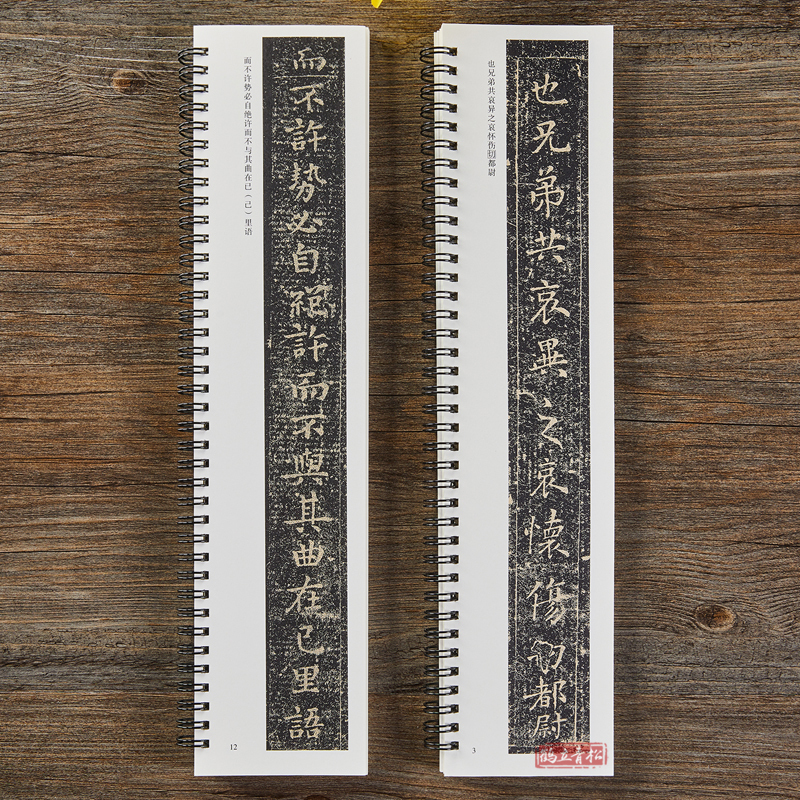 而不许势必自绝许而不与其曲在已（己）里语
而不許勢必自絕許而不與其曲在已里語
12
也兄弟共哀异之哀怀伤切都尉
也兄弟共哀異之哀懷傷切都尉
3
鹤立青松